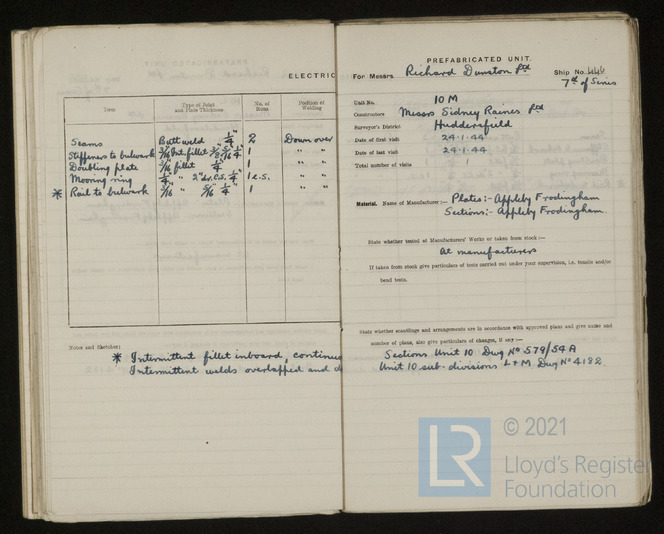 ELECTRIC
Item Type of Joint and Plate Thickness No. of Runs Position of Welding
Seams Butt weld 1/4" 2 Down over
Stiffeners to bulwark 3/16 Int. fillet 3/8 5/16 1/4" " "
Doubling plate 3/16 fillet 1/4" 1 " "
Mooring ring 1/4" " 2" dr. C.S. 1/4" 1 e.s. " "
* Rail to bulwark 3/16 " 5/16 1/4" 1 " "
Notes and Sketches:
* Intermittent fillet inboard, continuo
Intermittent welds overlapped and d
PREFABRICATED UNIT.
For Messrs. Richard Dunston Ltd Ship No. 446
7th of Series
Unit No. 10 M
Constructors Messrs Sidney Raines Ltd
Surveyor's District Huddersfield
Date of first visit 24.1.44
Date of last visit 24.1.44
Total number of visits 1
Material. Name of Manufacturer:— Plates:- Appleby Frodingham
Sections:- Appleby Frodingham.
State whether tested at Manufacturers' Works or taken from stock:—
At manufacturers
If taken from stock give particulars of tests carried out under your supervision, i.e. tensile and/or
bend tests.
State whether scantlings and arrangements are in accordance with approved plans and give name and
number of plans, also give particulars of changes, if any:—
Sections Unit 10 Dwg No 579/54A
Unit 10 sub-divisions L+M Dwg No 4182.
LR
© 2021
Lloyd's Register
Foundation